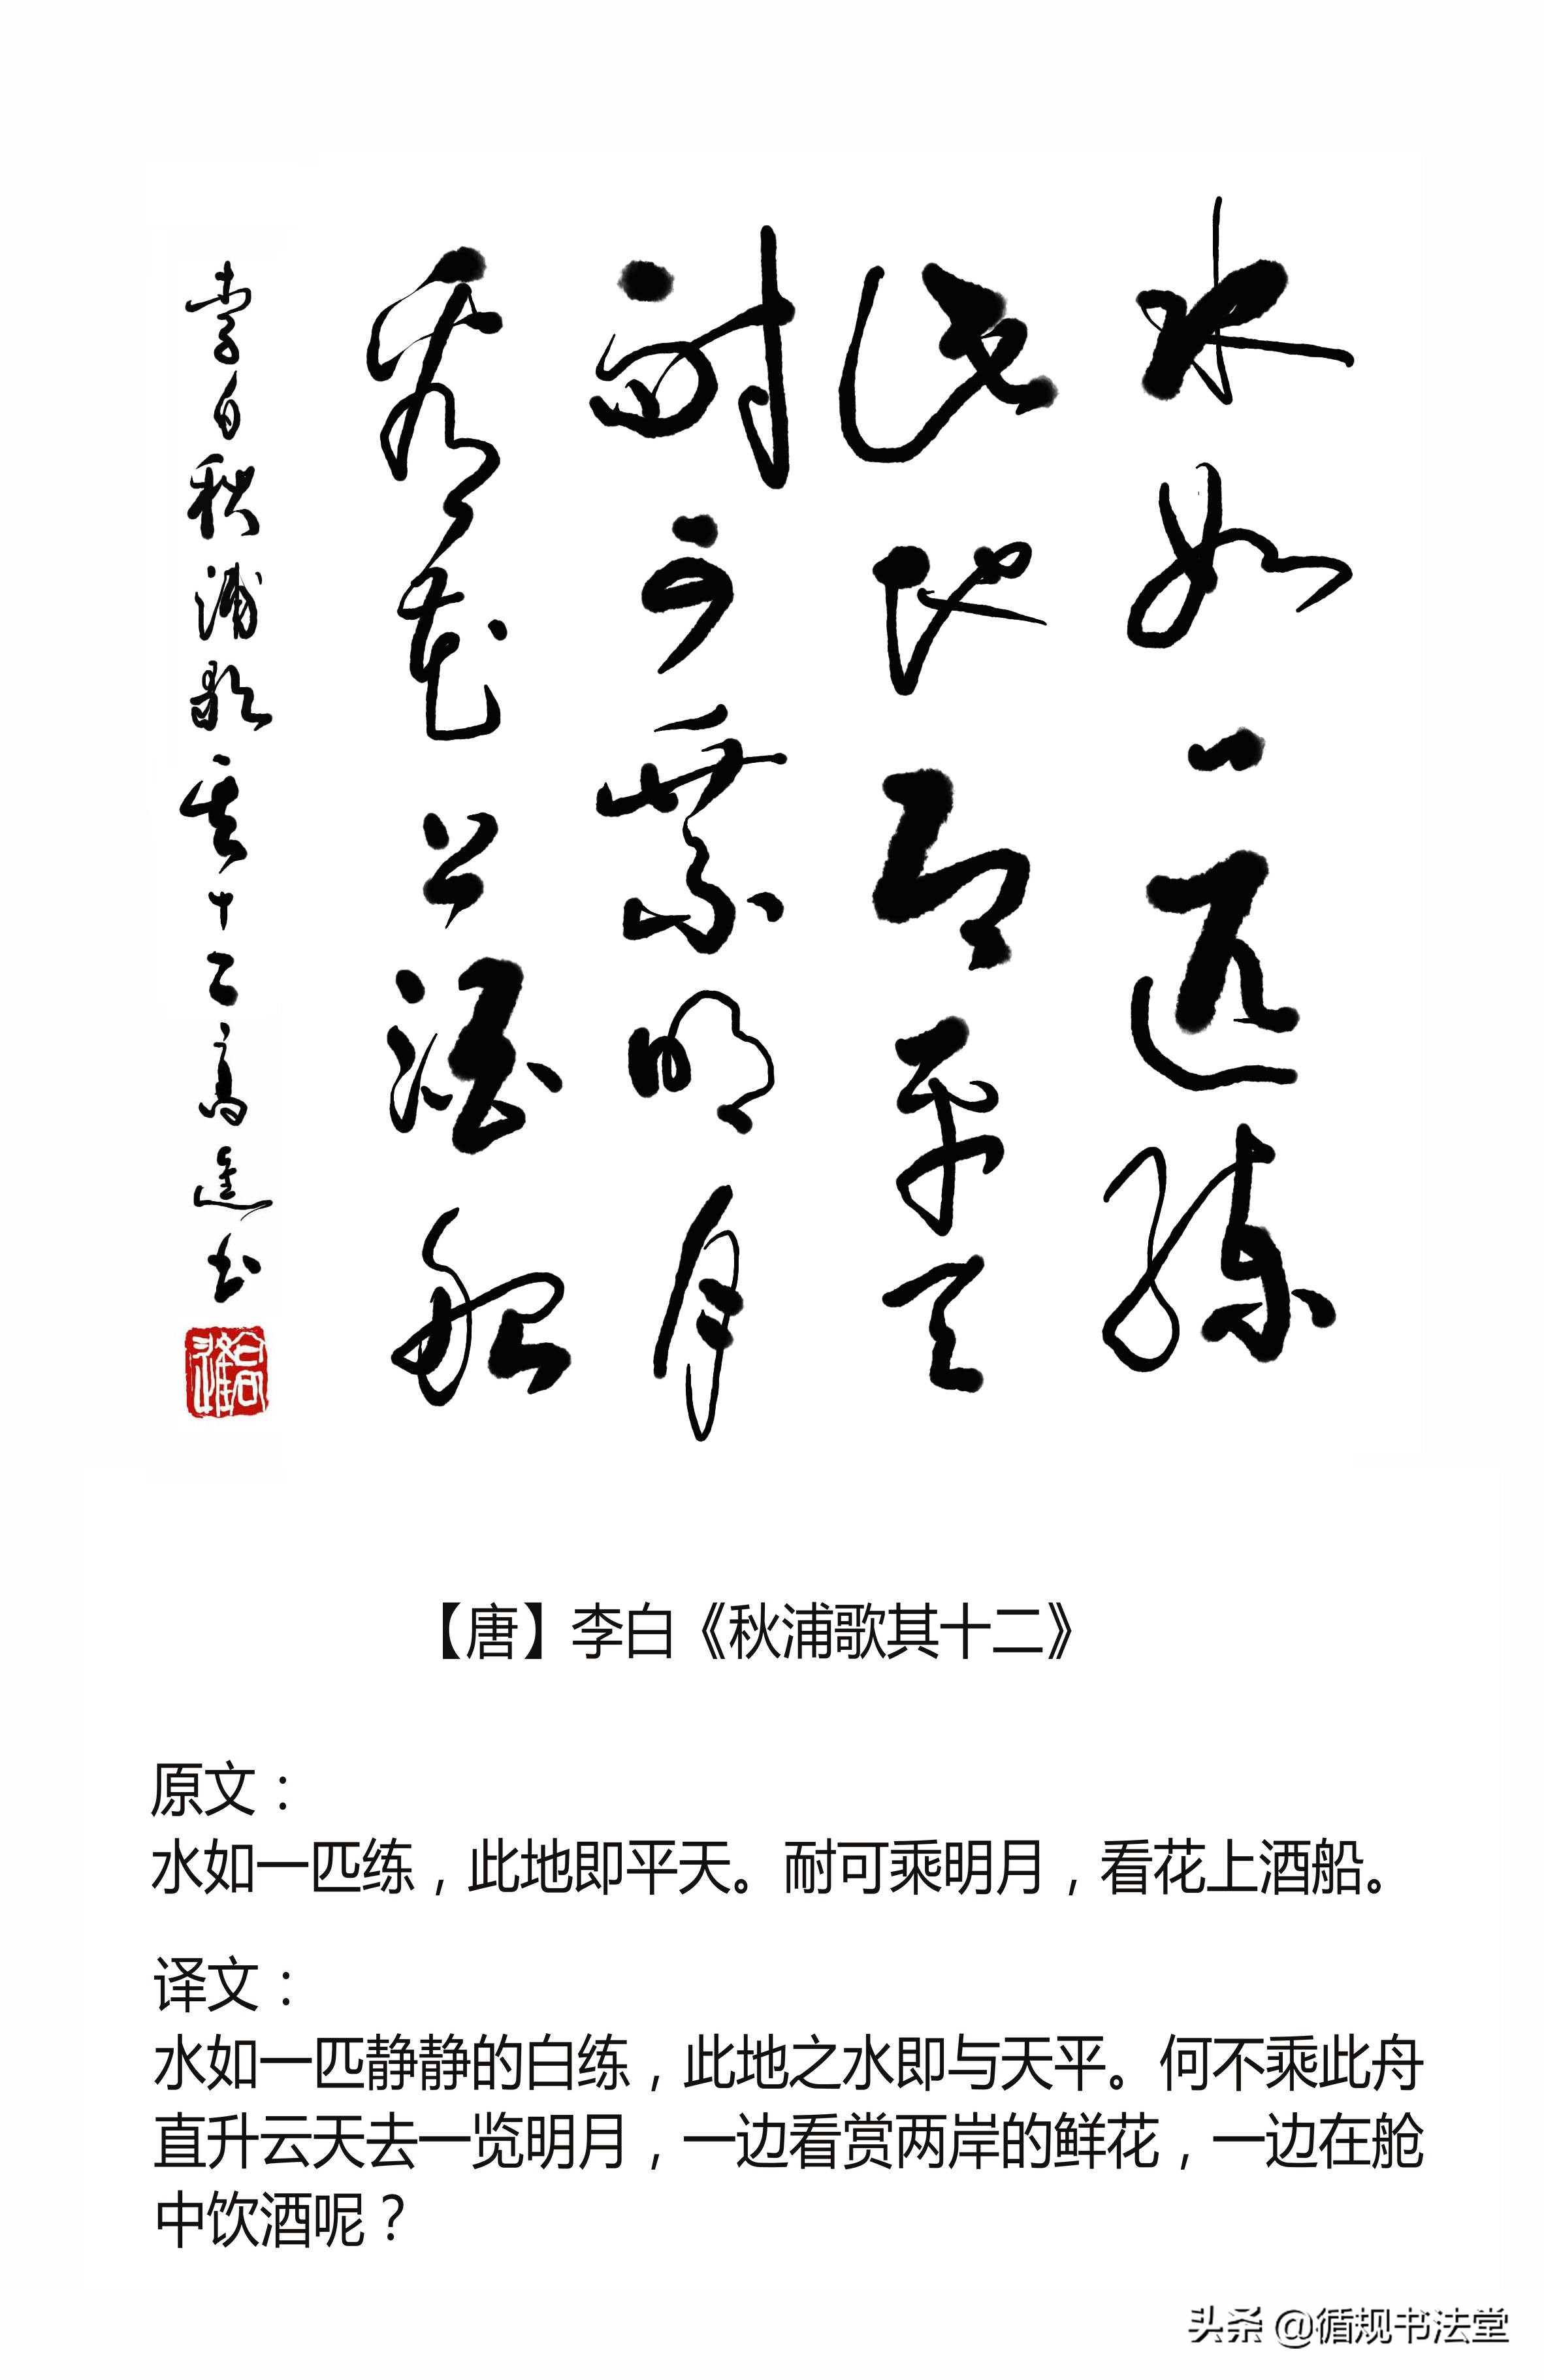 水如一匹练
此地即平天
耐可乘明月
看花上酒船
李白秋浦歌其十二高进书
高进
【唐】李白《秋浦歌其十二》
原文：
水如一匹练，此地即平天。耐可乘明月，看花上酒船。
译文：
水如一匹静静的白练，此地之水即与天平。何不乘此舟
直升云天去一览明月，一边看赏两岸的鲜花，一边在舱
中饮酒呢？
头条 @循规书法堂